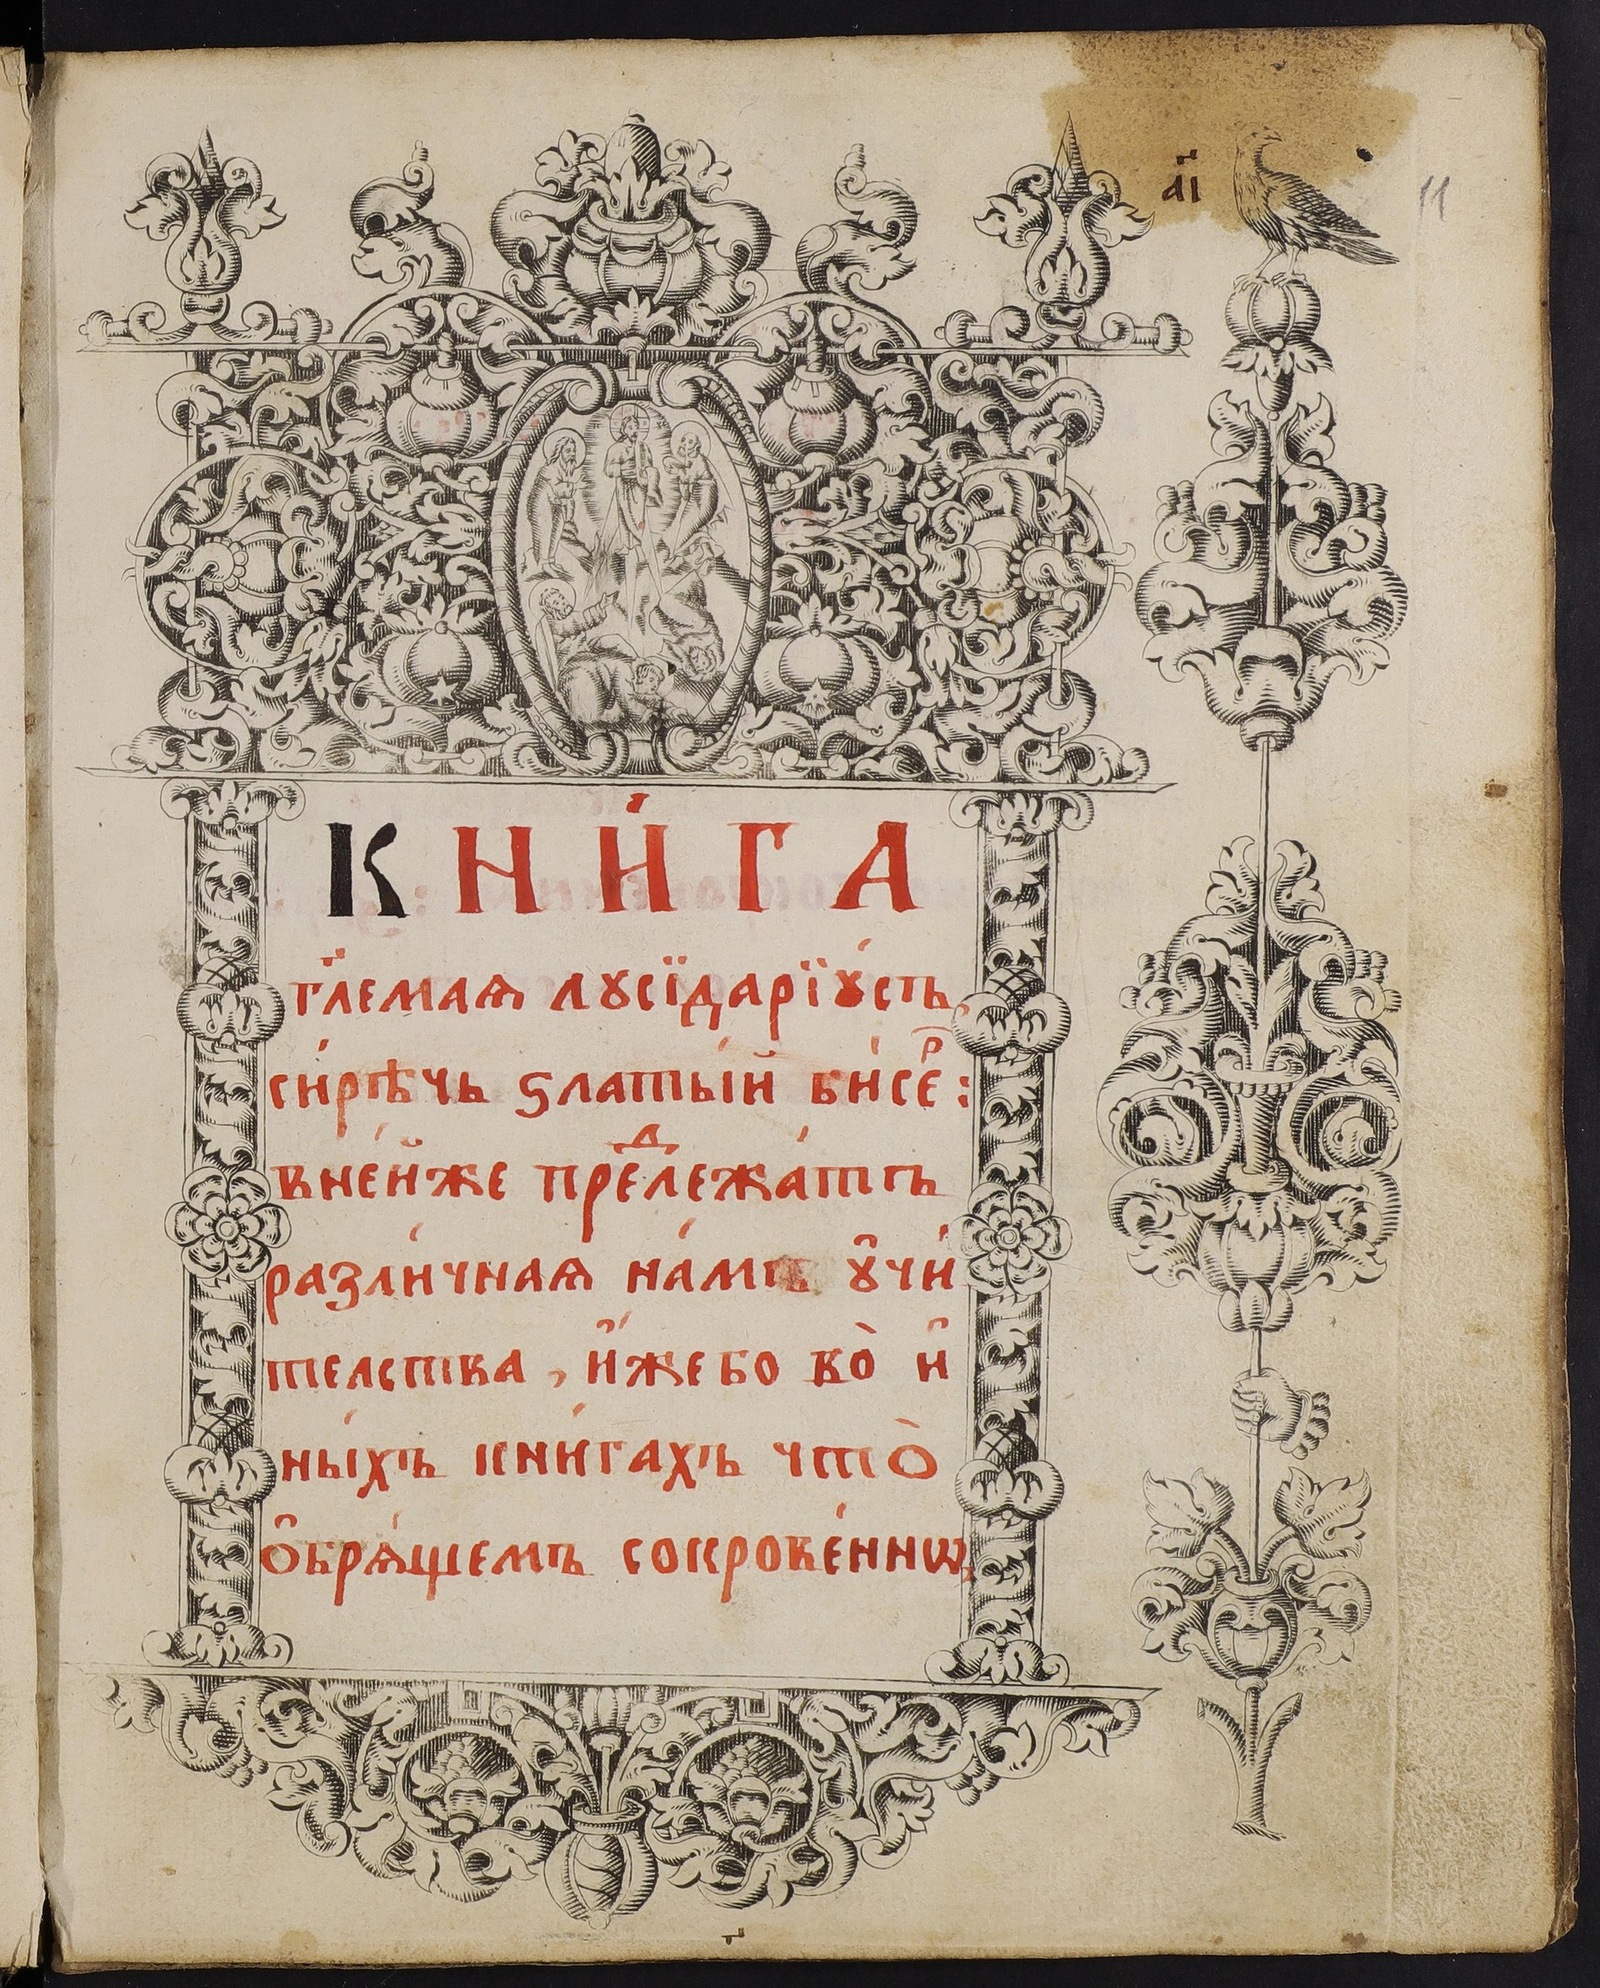 а҃і
11
КНИ́ГА
гл҃емая лꙋсїдарїꙋ́съ,
си́рѣчь ѕлаты́й би́се́ⷬ:
вне́йже преⷣлежа́тъ
разли́чная на́мъ ᲂу҆чи́
телства, и҆́жебо во̀ и҆
ны́хъ кни́гахъ что̀
ѡ҆бря́щемъ сокрове́ннѡ,